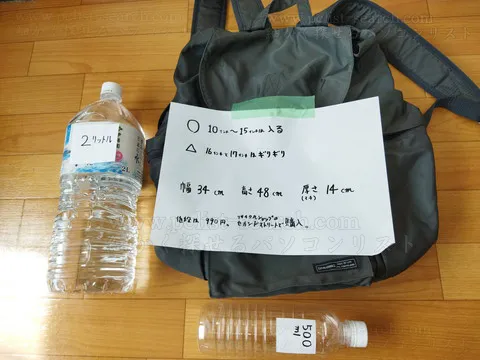 2リットル
○ 10インチ～15インチは入る
△ 16インチと17インチはギリギリ
幅 34cm 高さ 48cm 厚さ 14cm
(マチ)
値段は 990円。リサイクルショップの
セカンドストリートで購入。
500
ml